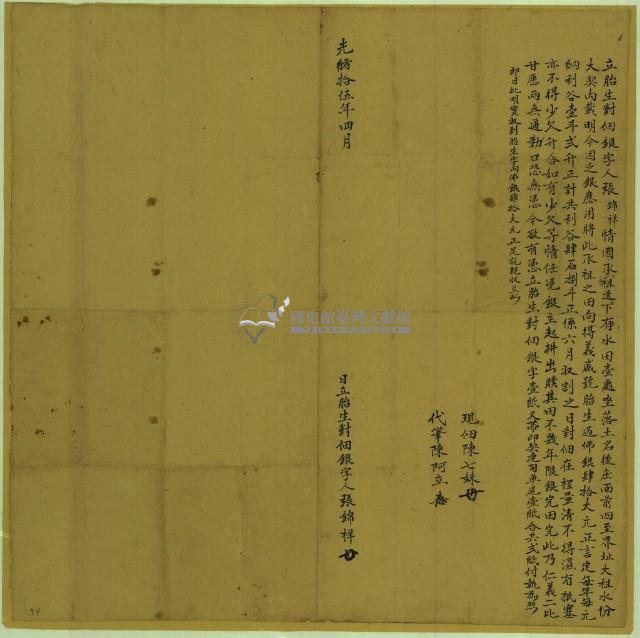 立胎生對佃銀字人張錦祥情因承祖遺下有水田壹處坐落土名後庄面前四至界址大租水份
大契內載明今因乏銀應用將此承祖之田向得義盛號胎生過佛銀肆拾大元正言定每年每元
納利谷壹斗弍升正計共利谷肆石捌斗正係六月収割之日對佃在埕量清不得濕有抵塞
亦不得少欠升合如有少欠等情任從銀主起耕出贌其田不幾年限銀完田完此乃仁義二比
甘愿兩無逼勒口恐無憑今欲有憑立胎生對佃銀字壹紙又帶印契連司單壹紙合共弍紙付執為炤
即日批明實收到胎生字內佛銀肆拾大元正足訖親收立炤
現佃陳七妹
代筆陳阿立
光緒拾伍年四月
日立胎生對佃銀字人張錦祥
國史館臺灣文獻館
TAIWAN HISTORICA
94